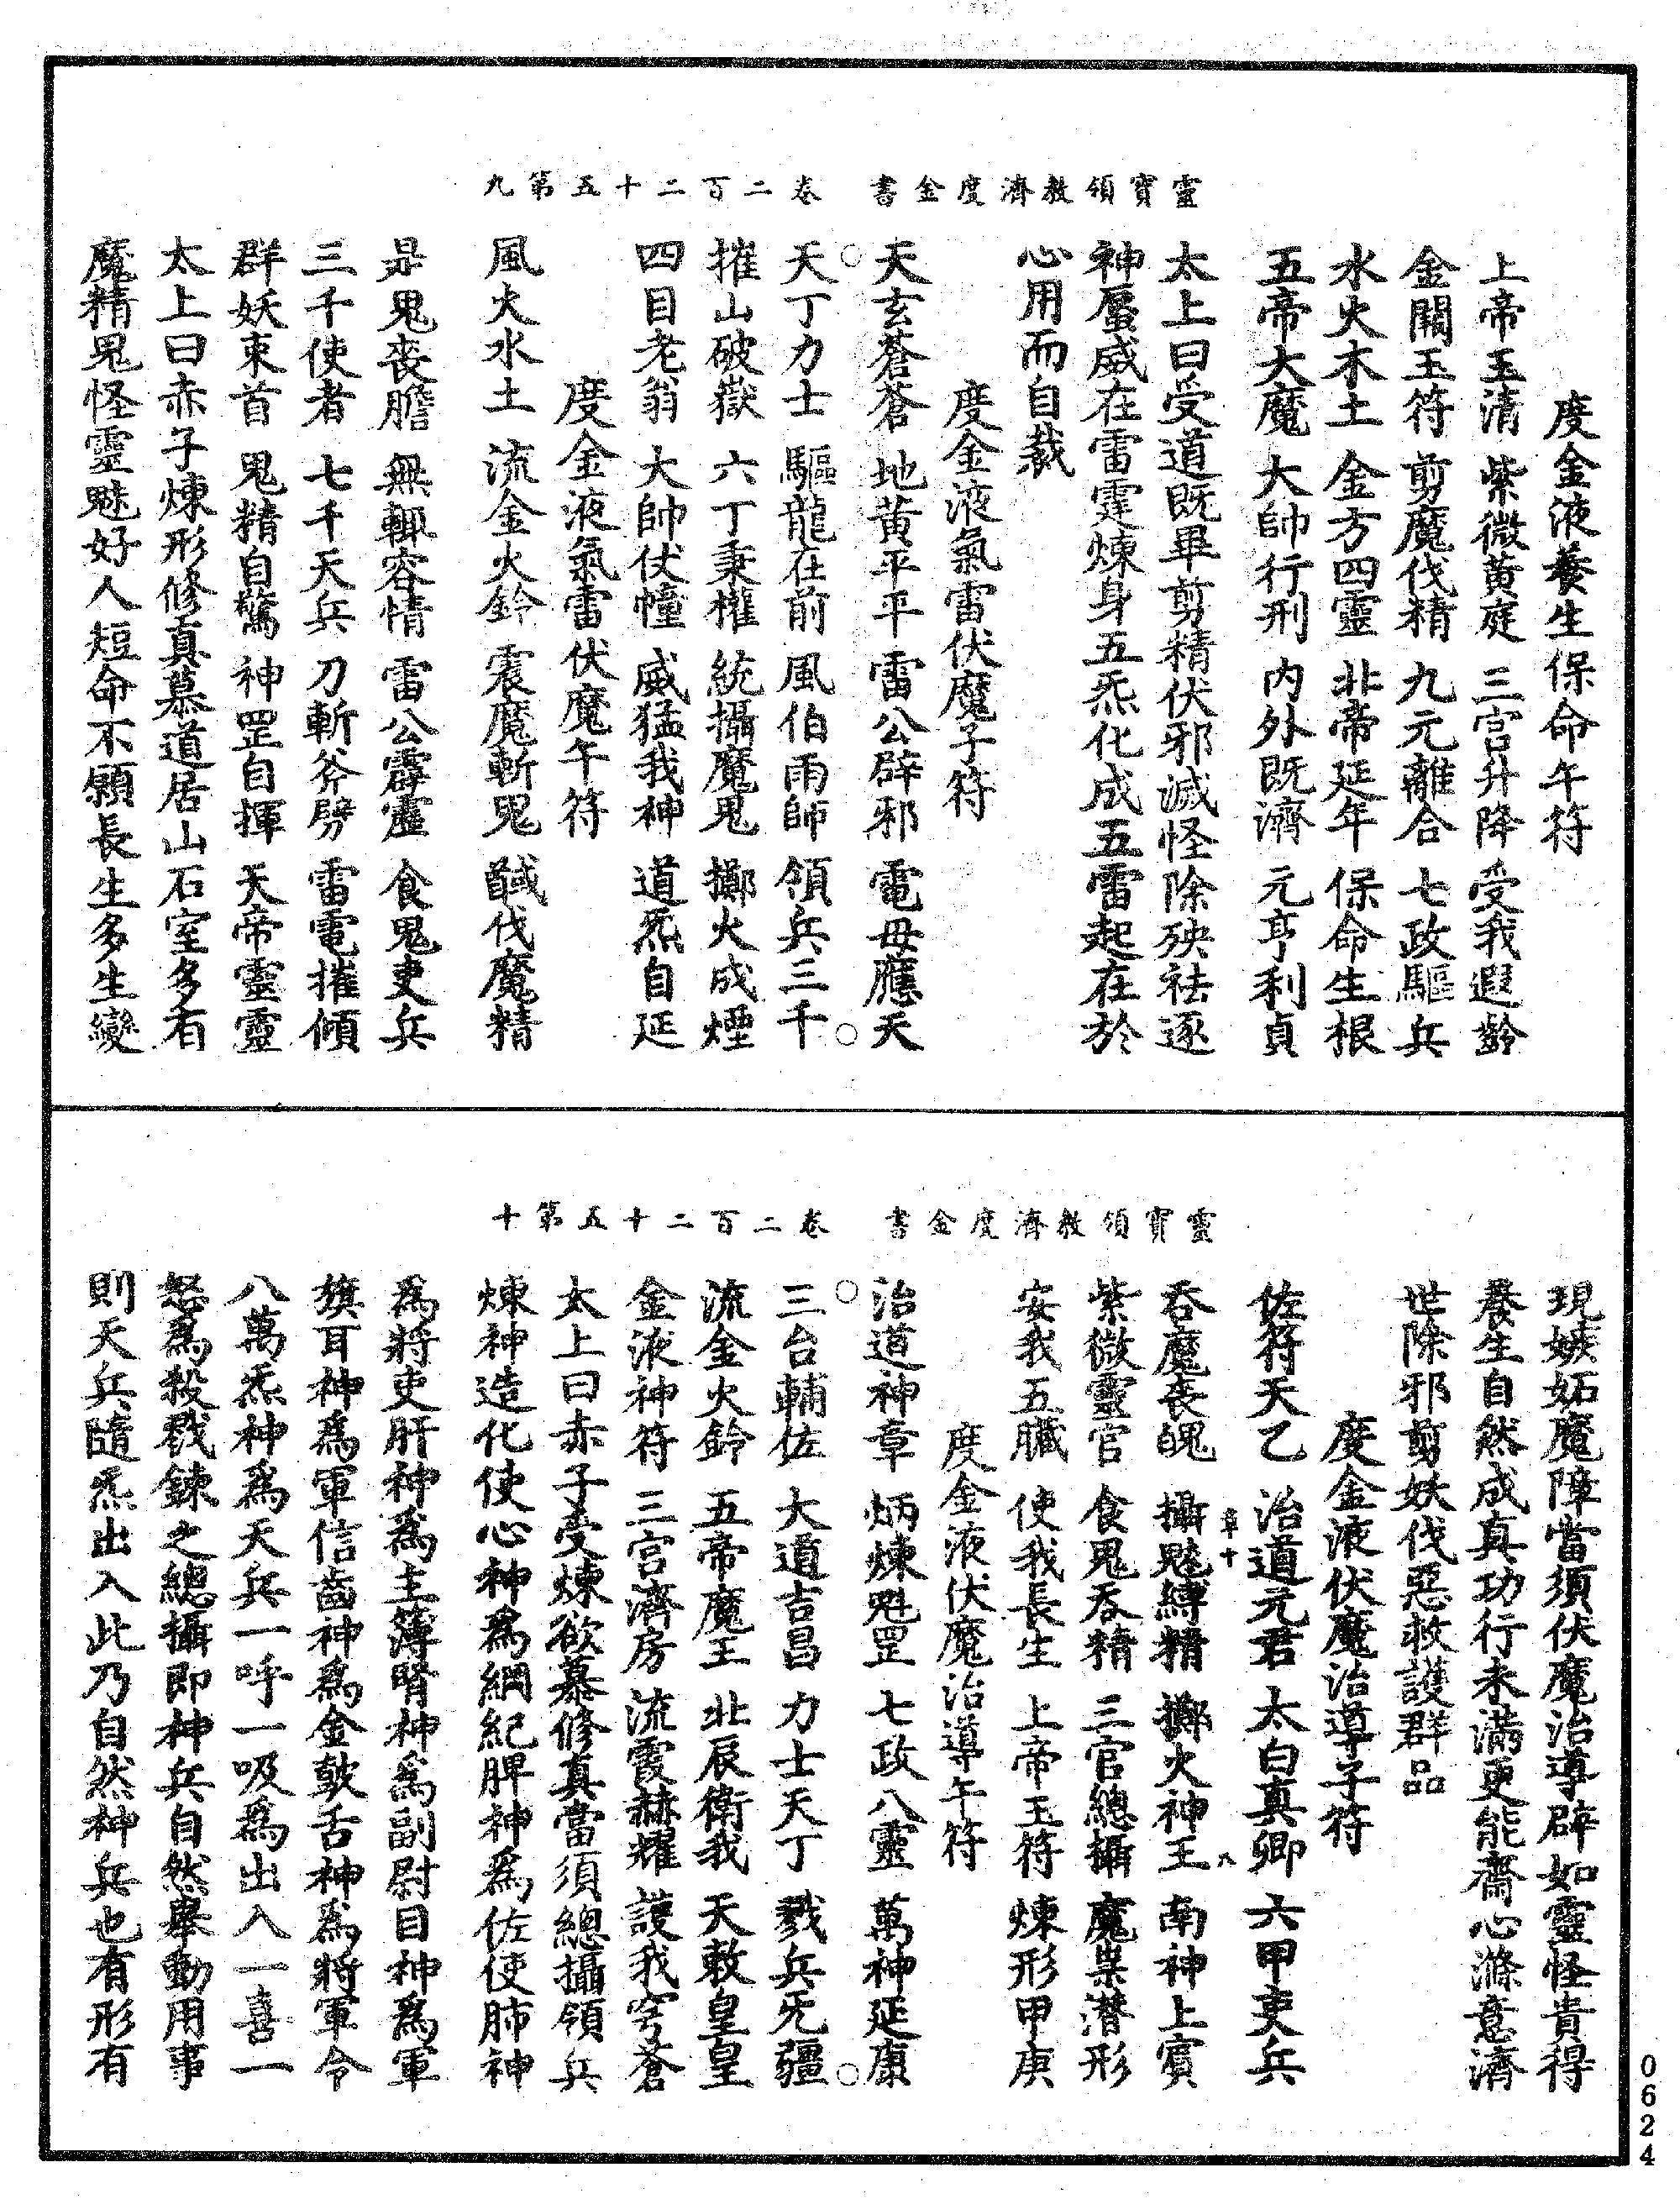 靈寶領教濟度金書　卷二百二十五第九
度金液養生保命午符
上帝玉清　紫微黃庭　三宮升降　受我遐齡
金闕玉符　剪魔伐精　九元離合　七政驅兵
水火木土　金方四靈　北帝延年　保命生根
五帝大魔　大帥行刑　內外既濟　元亨利貞
太上曰受道既畢剪精伏邪滅怪除殃祛逐
神蜃威在雷霆煉身五炁化成五雷起在於
心用而自裁
度金液氣雷伏魔子符
天玄蒼蒼　地黃平平　雷公辟邪　電毋應天
天丁力士　驅龍在前　風伯雨師　領兵三千
摧山破嶽　六丁秉權　統攝魔鬼　擲火成煙
四目老翁　大帥伏幢　威猛我神　道炁自延
度金液氣雷伏魔午符
風火水土　流金火鈴　震魔斬鬼　馘伐魔精
是鬼喪膽　無輒容情　雷公霹靂　食鬼吏兵
三千使者　七千天兵　刀斬斧劈　雷電摧傾
群妖束首　鬼精自驚　神罡自揮　天帝靈靈
太上曰赤子煉形修真慕道居山石室多有
魔精鬼怪靈魅好人短命不願長生多生變
靈寶領教濟度金書　卷二百二十五第十
現嫉妬魔障當須伏魔治導辟如靈怪貴得
養生自然成真功行未滿更能齋心滌意濟
世除邪剪妖伐惡救護群品
度金液伏魔治導子符
佐符天乙　治道元君　太白真卿　六甲吏兵
章十　八
吞魔喪魄　攝魅縛精　擲火神王　南神上賓
紫微靈官　食鬼吞精　三官總攝　魔祟潛形
安我五臟　使我長生　上帝玉符　煉形甲庚
度金液伏魔治導午符
治道神章　炳煉魁罡　七政八靈　萬神延康
三台輔佐　大道吉昌　力士天丁　戮兵旡疆
流金火鈴　五帝魔王　北辰衛我　天敕皇皇
金液神符　三宮濟房　流霞赫耀　護我穹蒼
太上曰赤子受煉欲慕修真當須總攝領兵
煉神造化使心神為綱紀脾神為佐使肺神
為將吏肝神為主簿腎神為副尉目神為軍
旗耳神為軍信齒神為金鼓舌神為將軍令
八萬炁神為天兵一呼一吸為出入一喜一
怒為殺戮鍊之總攝即神兵自然舉動用事
則天兵隨炁出入此乃自然神兵也有形有
0624